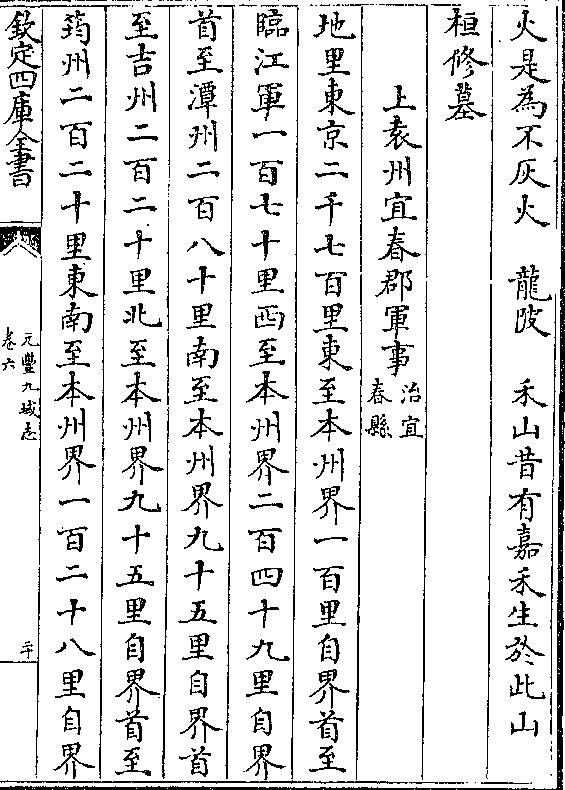 火是為不灰火　龍陂　禾山昔有嘉禾生於此山
桓修墓
上袁州宜春郡軍事治宜春縣
地里東京二千七百里東至本州界一百里自界首至
臨江軍一百七十里西至本州界二百四十九里自界
首至潭州二百八十里南至本州界九十五里自界首
至吉州二百二十里北至本州界九十五里自界首至
筠州二百二十里東南至本州界一百二十八里自界
欽定四庫全書
元豐九域志
卷六
二十